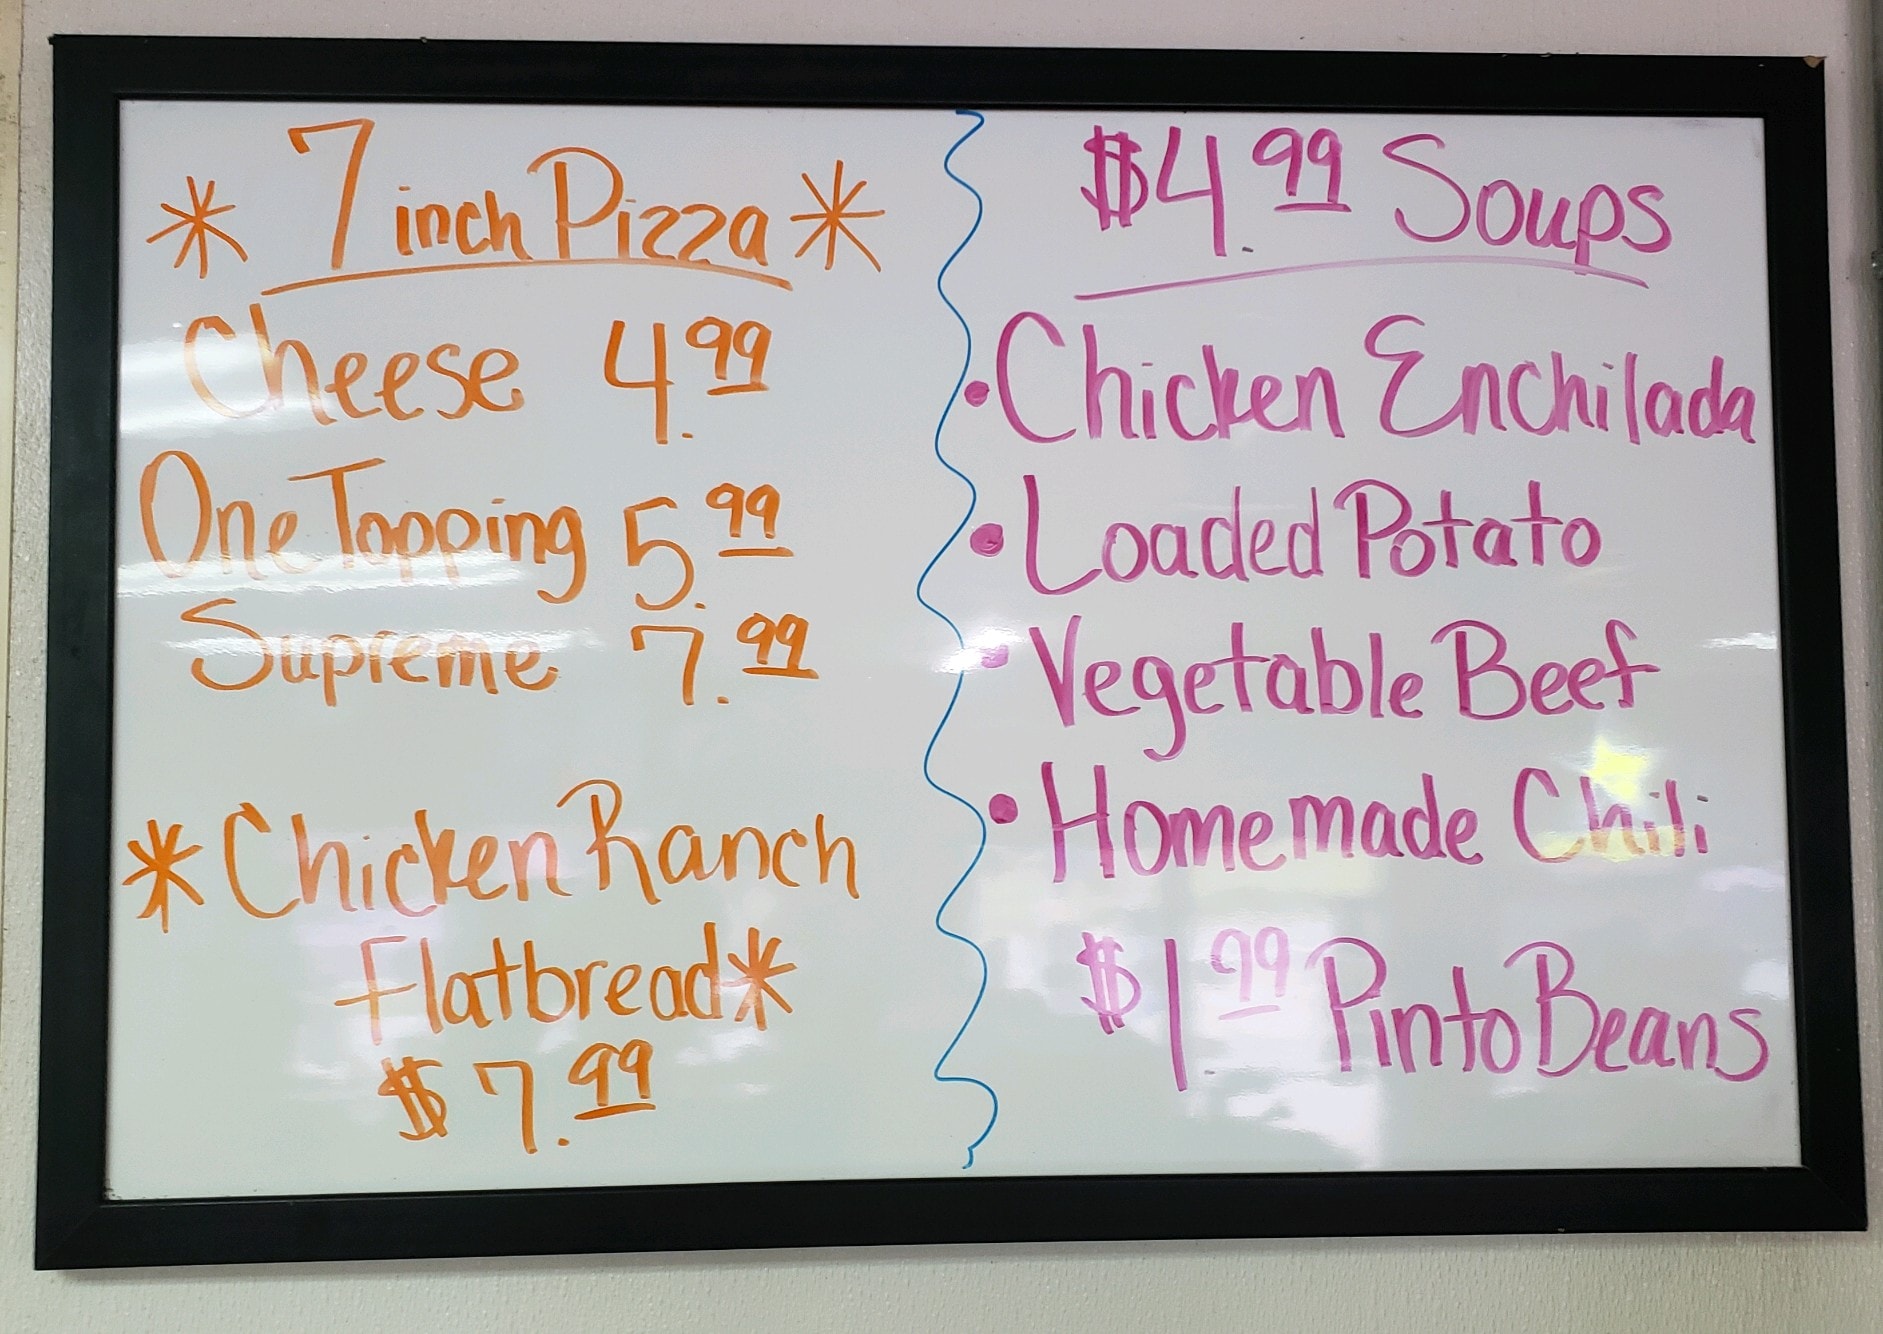 * 7 inch Pizza *
Cheese 4.99
One Topping 5.99
Supreme 7.99
* Chicken Ranch
Flatbread *
$7.99
$4.99 Soups
• Chicken Enchilada
• Loaded Potato
• Vegetable Beef
• Homemade Chili
$1.99 Pinto Beans